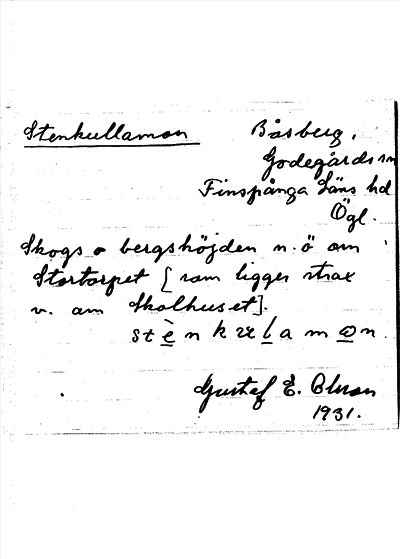 Stenkullamon Båsberg,
Godegårds sn
Finspånga Läns hd
Ögl.
Skogs o bergshöjden n.ö om
Stortorpet [som ligger strax
v. om Skolhuset].
Gustef E.
1931.